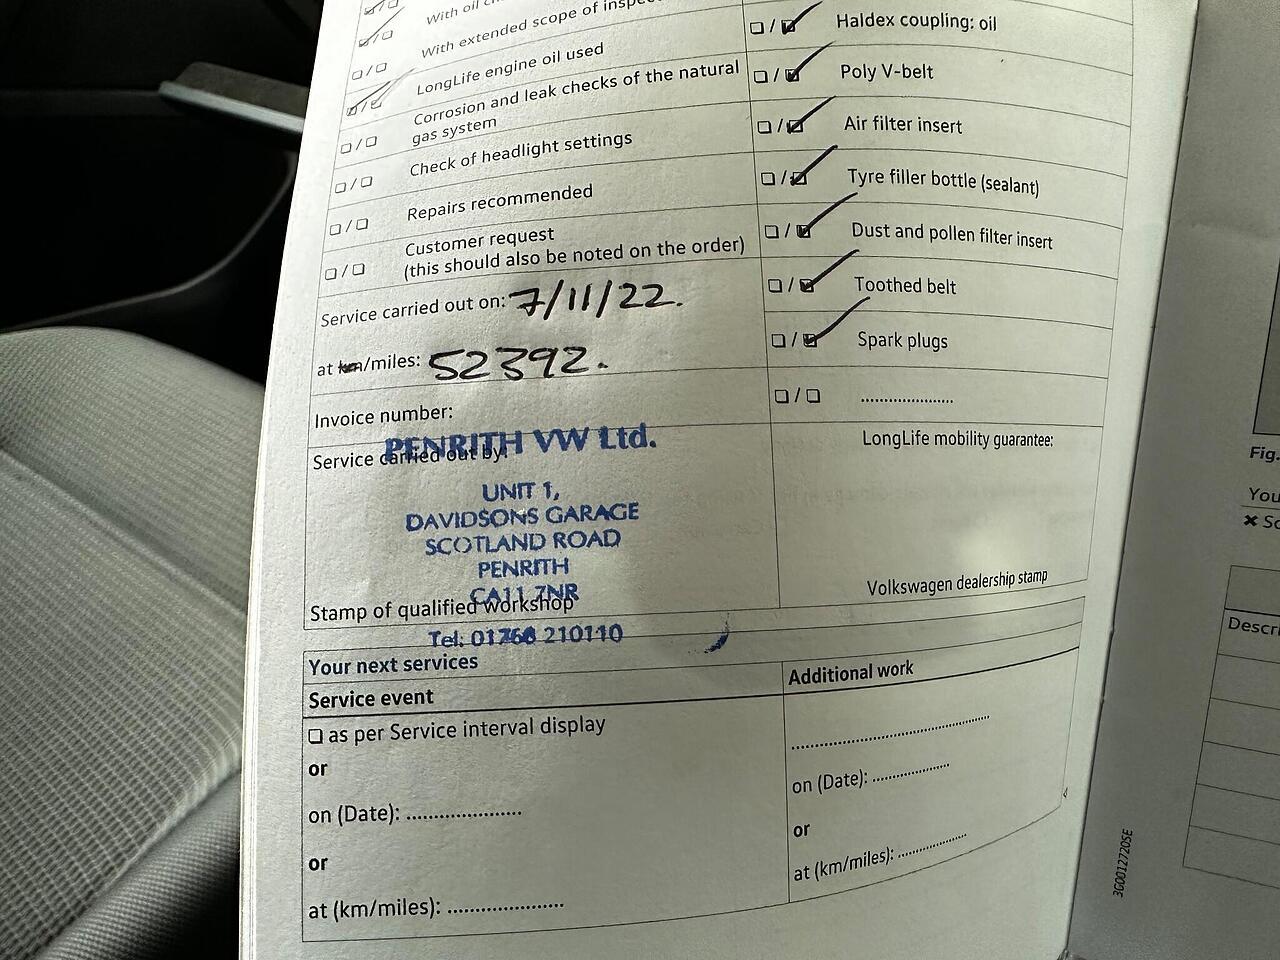 With oil
With extended scope of
LongLife engine oil used
Corrosion and leak checks of the natural
gas system
Check of headlight settings
Repairs recommended
Customer request
(this should also be noted on the order)
Service carried out on: 7/11/22.
at km/miles: 52392.
Invoice number:
Service carried out by:
PENRITH VW Ltd.
UNIT 1,
DAVIDSONS GARAGE
SCOTLAND ROAD
PENRITH
CA11 7NR
Stamp of qualified workshop
Tel: 01768 210110
Haldex coupling: oil
Poly V-belt
Air filter insert
Tyre filler bottle (sealant)
Dust and pollen filter insert
Toothed belt
Spark plugs
....................
LongLife mobility guarantee:
Volkswagen dealership stamp
Your next services
Service event
as per Service interval display
or
on (Date): ....................
or
at (km/miles): ....................
Additional work
........................................
on (Date): ................
or
at (km/miles): ................
3G0012720SE
Fig.
You
Descri